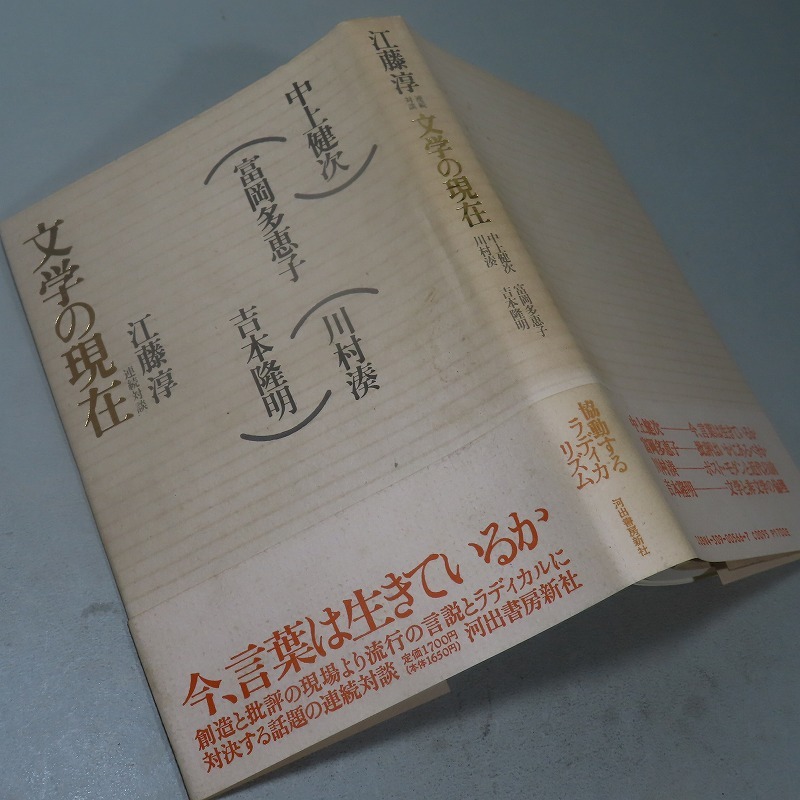 文学の現在
江藤淳
連続対談
中上健次
富岡多恵子
川村湊
吉本隆明
今、言葉は生きているか
創造と批評の現場より流行の言説とラディカルに
対決する話題の連続対談
定価1700円
(本体1650円)
河出書房新社
江藤淳
連続
対談
文学の現在
中上健次
川村湊
富岡多恵子
吉本隆明
協動する
ラディカ
リズム
河出書房新社
中上健次――今、言葉は生きているか